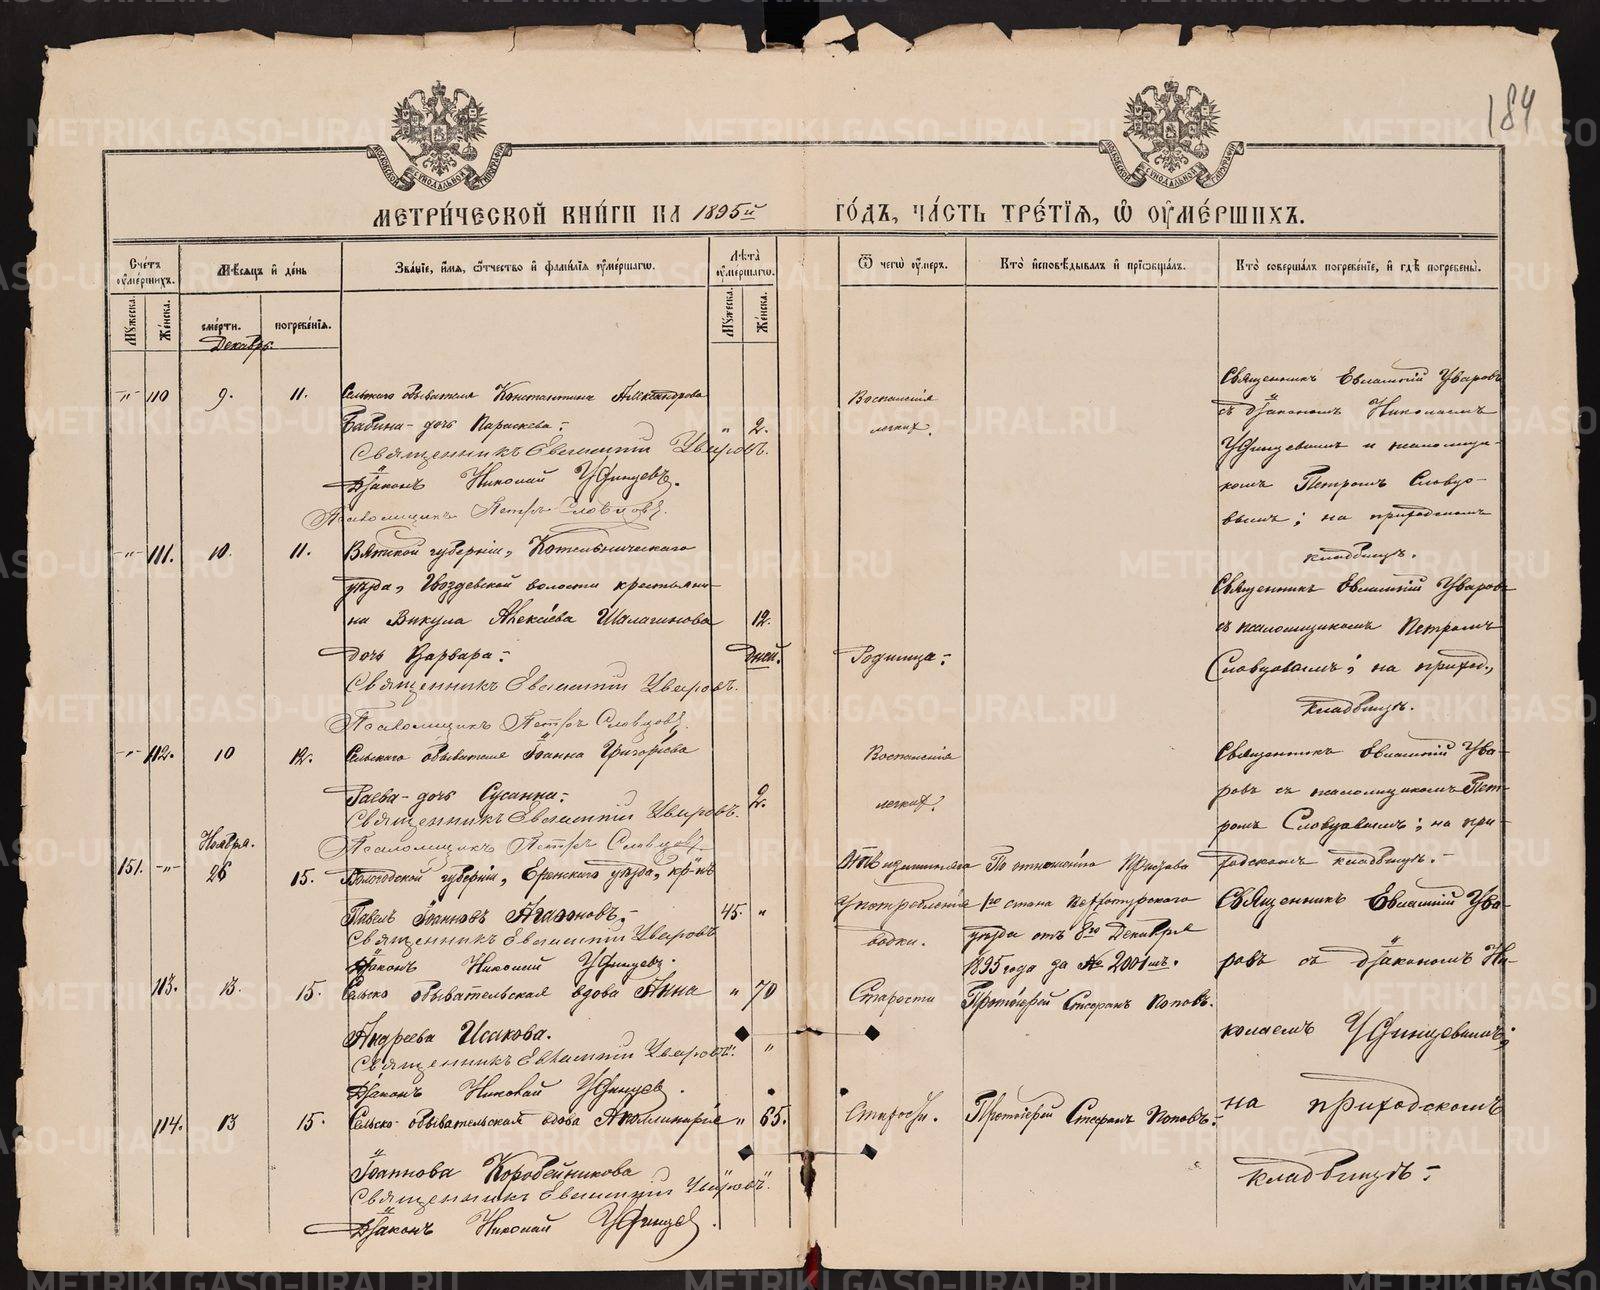 184
МЕТРИ́ЧЕСКОЙ КНИ́ГИ НА 1895й ГО́ДЪ, ЧА́СТЬ ТРЕ́ТІѦ, Ѡ ОУМЕ́РШИХЪ.
Сче́тъ оуме́ршихъ.
Мѣ́сяцъ и де́нь
Зва́ніе, и́мя, ѻ́тчество и фами́лія оуме́ршагѡ.
Лѣ́та оуме́ршагѡ.
Ѿ чегѡ̀ оу́меръ.
Кто̀ исповѣ́дывалъ и пріѡбща́лъ.
Кто̀ соверша́лъ погребе́ніе, и гдѣ̀ погребены̀.
Му́жеска. Же́нска.
сме́рти. погребе́нія.
Му́жеска. Же́нска.
Декабрь.
-"- 110 9. 11. Сельскаго обывателя Константина Александрова
Бабина - дочь Параскева:- " 2.
Священникъ Евлампій Уваровъ.
Діаконъ Николай Удинцевъ.
Псаломщикъ Петръ Словцовъ.
Воспаленія
легких.
Священникъ Евлампій Уваровъ
съ діакономъ Николаемъ
Удинцевымъ и псаломщи-
комъ Петромъ Словцо-
вымъ; на приходскомъ
кладбищѣ.
-"- 111. 10. 11. Вятской губерніи, Котельническаго
уѣзда, Гвоздевской волости крестьяни-
на Викула Алексіева Шалагинова 12.
дочь Варвара:- дней.
Священникъ Евлампій Уваровъ.
Псаломщикъ Петръ Словцовъ.
Родимца:-
Священникъ Евлампій Уваровъ
съ псаломщикомъ Петромъ
Словцовымъ; на приход.,
кладбищѣ.
-"- 112. 10 12. Сельскаго обывателя Іоанна Григоріева
Гаева - дочь Сусанна:- 2.
Священникъ Евлампій Уваровъ.
Псаломщикъ Петръ Словцовъ
Воспаленія
легких.
Священникъ Евлампій Ува-
ровъ съ псаломщикомъ Пет-
ромъ Словцовымъ; на при-
ходскомъ кладбищѣ.-
Ноября.
151. -"- 26 15. Вологодской губерніи, Еренскаго уѣзда, кр-нъ
Павелъ Іоанновъ Агафоновъ.- 45. "
Священникъ Евлампій Уваровъ
Діаконъ Николай Удинцевъ.
Отъ излишняго
употребленія
водки.
По отношенію Пристава
1го стана Верхотурскаго
уѣзда отъ 8го Декабря
1895 года за № 2001мъ.
Священникъ Евлампій Ува-
ровъ съ діакономъ Ни-
колаемъ Удинцевымъ;
на приходскомъ
кладбищѣ:-
113. 13. 15. Сельско обывательская вдова Анна " 70
Андреева Исакова.
Священникъ Евлампій Уваровъ. "
Діаконъ Николай Удинцев.
Старости Протоіерей Стефанъ Поповъ.
114. 13 15. Сельско-обывательская вдова Аполлинарія " 65.
Іоаннова Коробейникова
Священникъ Евлампій Уваровъ.
Діаконъ Николай Удинцев.
Старости. Протоіерей Стефанъ Поповъ:-
METRIKI.GASO-URAL.RU